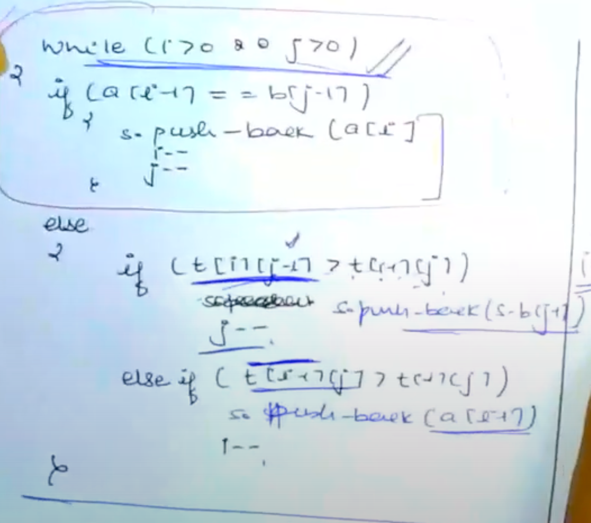 while (i>0 && j>0)
{
if (a[i-1] == b[j-1])
{
s.push-back (a[i]
i--
j--
}
else
{
if (t[i][j-1] > t[i-1][j])
s.push-back(s.b[j-1])
j--
else if (t[i-1][j] > t[-1][j])
s. push-back (a[i-1])
i--
}